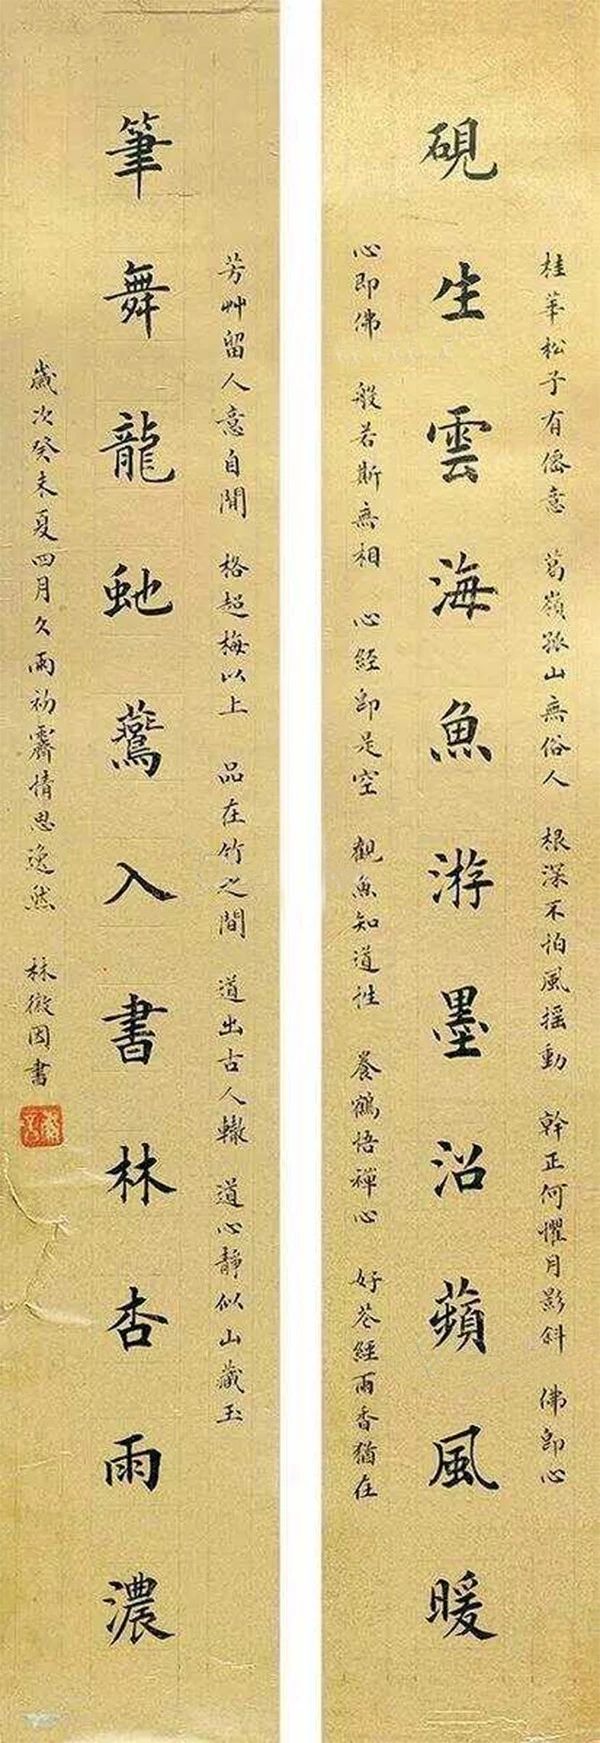 桂華松子有僊意 葛嶺孤山無俗人 根深不怕風搖動 幹正何懼月影斜 佛即心
硯生雲海魚游墨沼蘋風暖
心即佛 般若斯無相 心經即是空 觀魚知道性 養鶴悟禪心 好花經雨香猶在
芳艸留人意自閒 格超梅以上 品在竹之間 道出古人轍 道心靜似山藏玉
筆舞龍虵鶯入書林杏雨濃
歲次癸未夏四月久雨初霽情思逸然 林徽因書